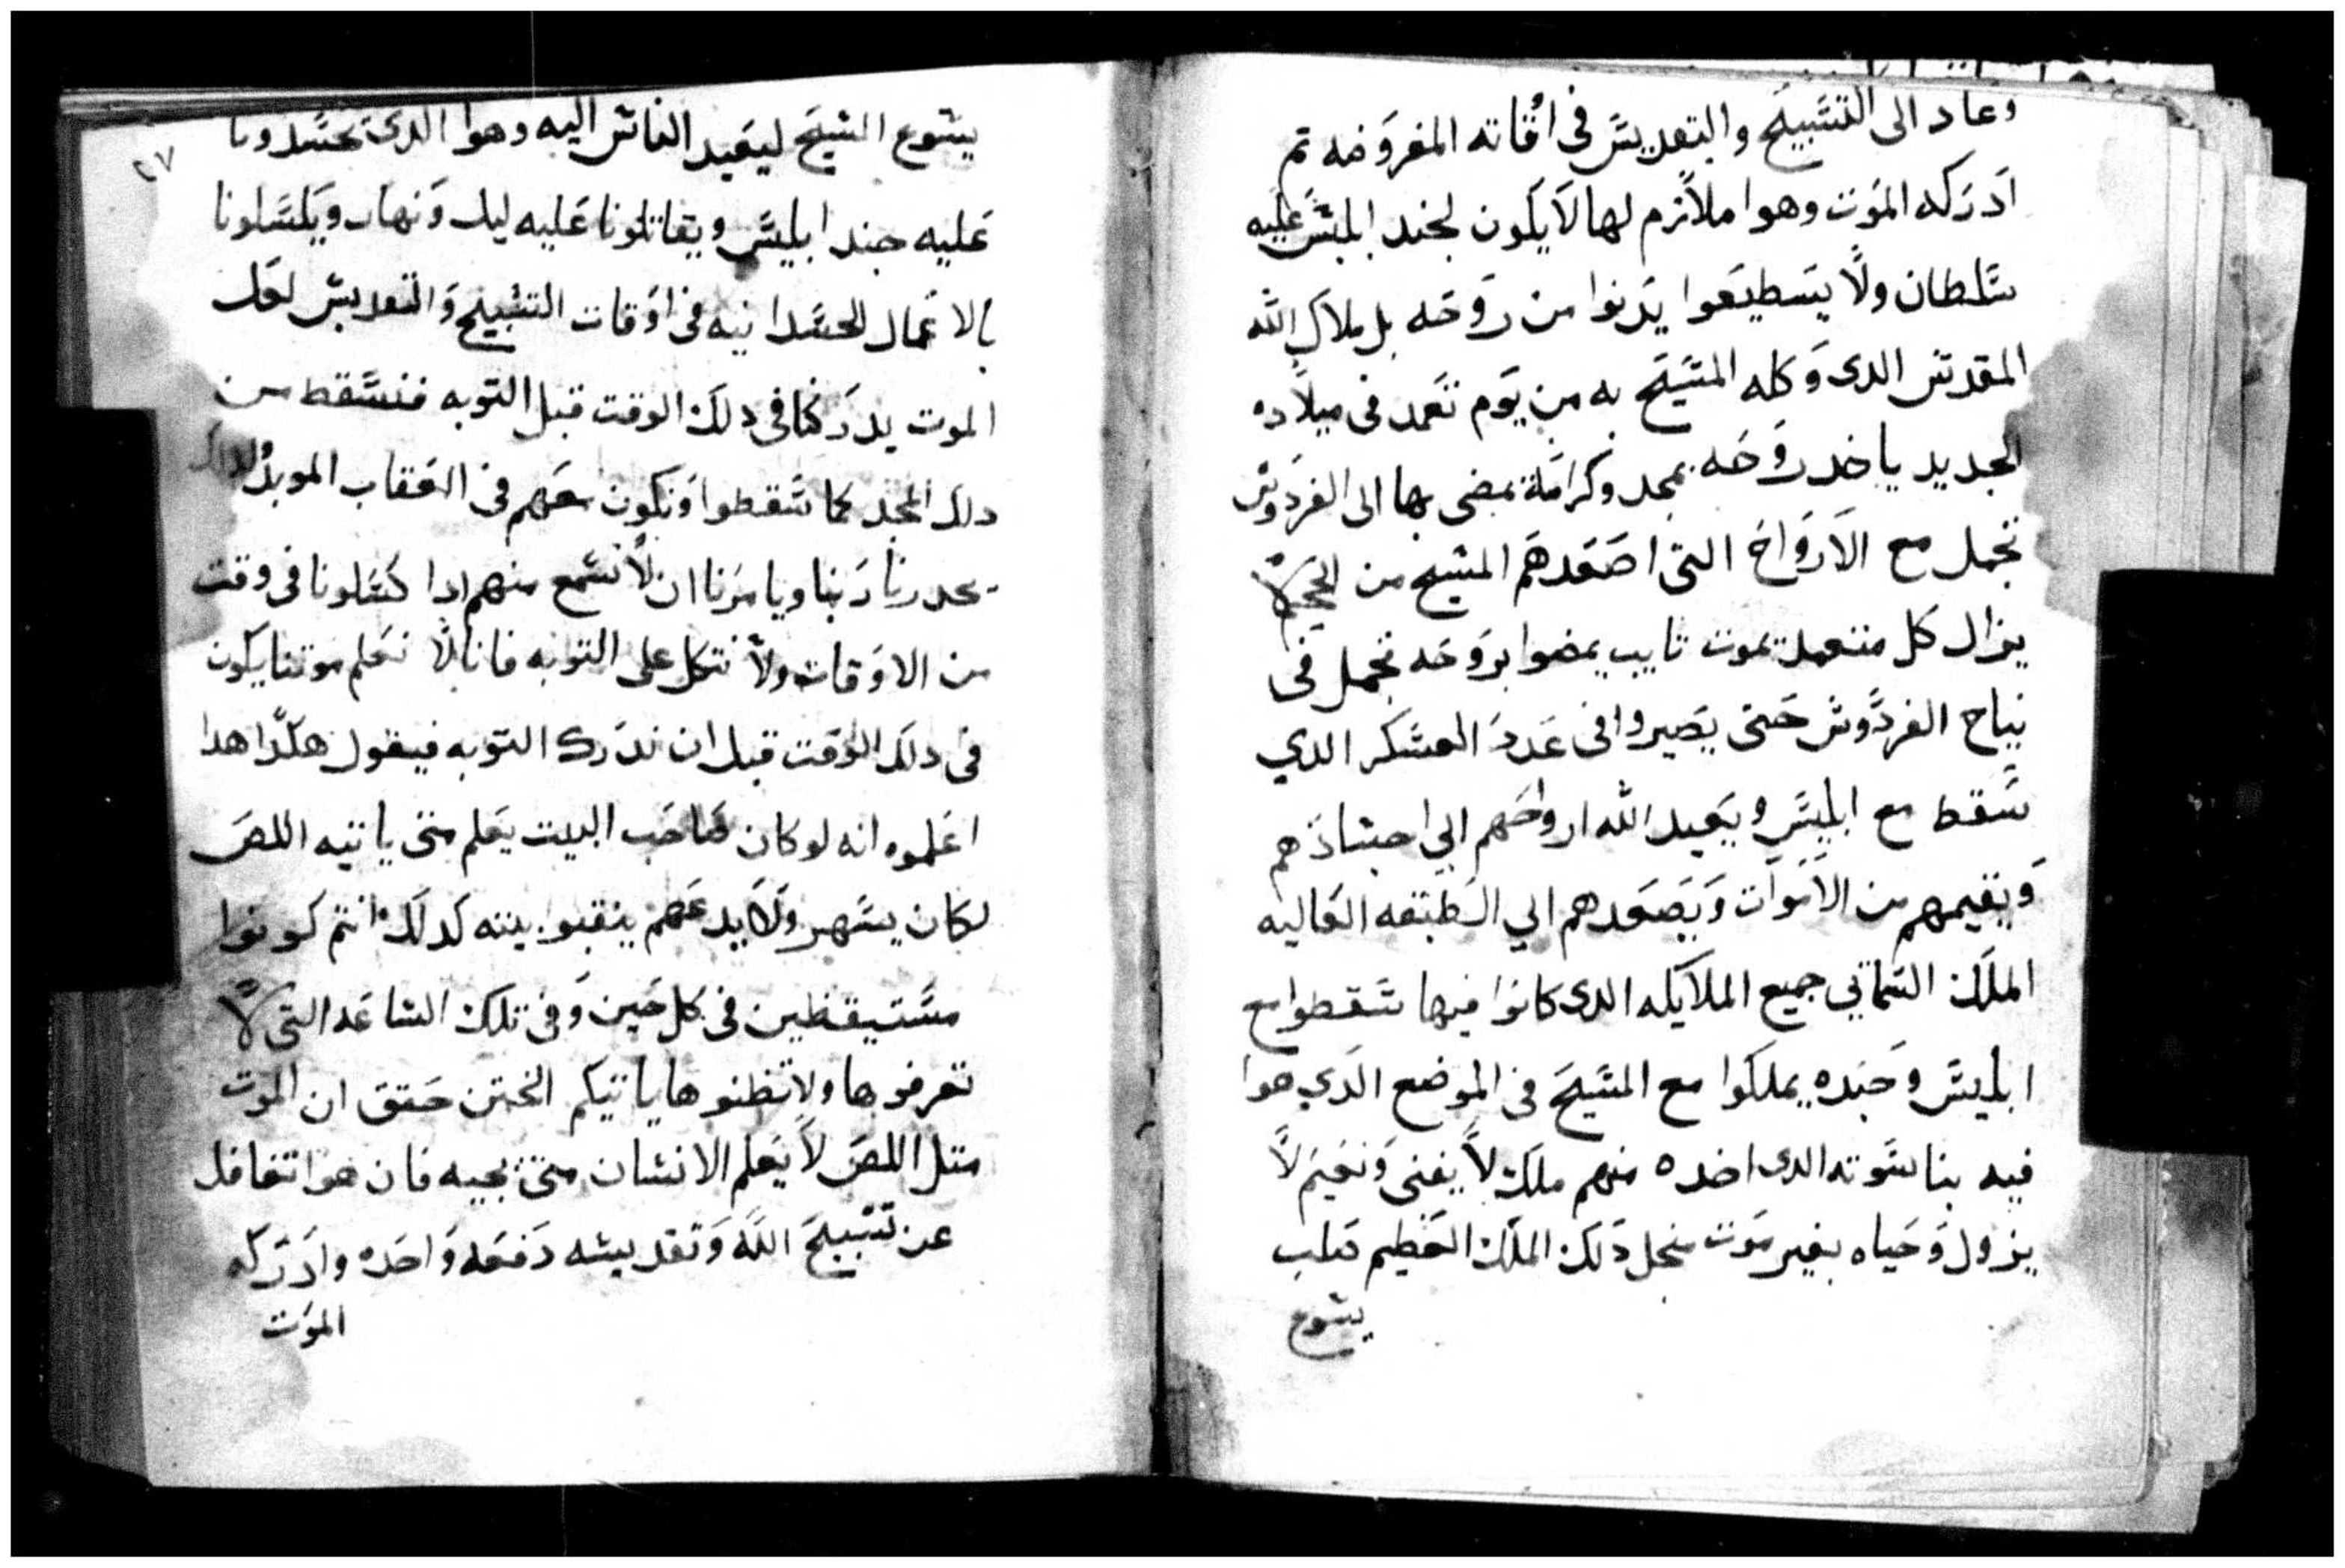 وعاد الى التسبيح والتقديس فى اقاته المفروضه تم
ادركه الموت وهوا ملازم لها لا يكون لجند ابليس عليه
سلطان ولا يسطيعوا يدنوا من روحه بل ملاك الله
المقدس الدى وكله المسيح به من يوم تعمد فى ميلاده
الجديد ياخد روحه بمجد وكرامة يمضى بها الى الفردوس
تجمل مع الارواح التى اصعدهم المسيح من الجحيم لا
يزال كل متعمد يموت تايب يمضوا بروحه تجمل فى
نياح الفردوس حتى يصيروا فى عدد العسكر الدي
سقط مع ابليس ويعيد الله ارواحهم الي اجسادهم
ويقيمهم من الاموات ويصعدهم الي الطبقه العاليه
الملك السماني جميع الملايكه الدى كانوا فيها سقطوا مع
ابليس وجنده يملكوا مع المسيح فى الموضع الدي هوا
فيه بناسوته الدى اخده منهم ملك لا يفنى ونعيم لا
يزول وحياه بغير موت منجل دلك الملك العظيم صلب
يسوع
٢٧
يسوع المسيح ليعيد الناس اليه وهوا الدى تحسدونا
عليه جند ابليس ويقاتلونا عليه ليل ونهار ويكسلونا
بالاعمال الجسدانيه فى اوقات التسبيح والتقديس لعل
الموت يدركنا فى دلك الوقت قبل التوبه فنسقط من
دلك المجد كما سقطوا ونكون معهم فى العقاب الموبد لدلك
يحدرنا ربنا ويامرنا ان لا نسمع منهم ادا كسلونا فى وقت
من الاوقات ولا نتكل على التوبه فانا لا نعلم موتنا يكون
فى دلك الوقت قبل ان ندرك التوبه فيقول هكدا هدا
اعلموه انه لو كان صاحب البيت يعلم متى ياتيه اللص
لكان يسهر ولا يدعهم ينقبوا بيته كدلك انتم كونوا
مستيقظين فى كل حين وفى تلك الساعه التى لا
تعرفوها ولا تظنوها ياتيكم الختن حقق ان الموت
متل اللص لا يعلم الانسان متى يجيه فان هوا تغافل
عن تسبيح الله وتقديسه دفعه واحده وادركه
الموت